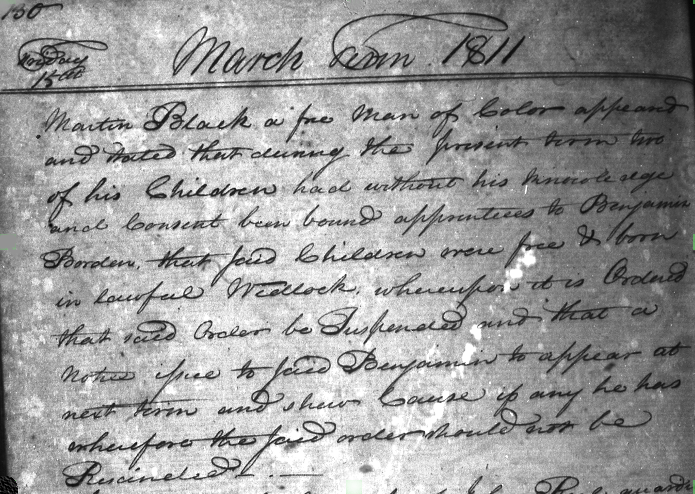 130
Friday
15th
March Term 1811
Martin Black a free Man of Color appeared
and stated that during the present term two
of his Children had without his knowledge
and Consent been bound apprentices to Benjamin
Borden. that said Children were free & born
in lawful Wedlock. whereupon it is Ordered
that said Order be Suspended and that a
Notice issue to said Benjamin to appear at
next term and shew Cause if any he has
wherefore the said order should not be
Rescinded. —